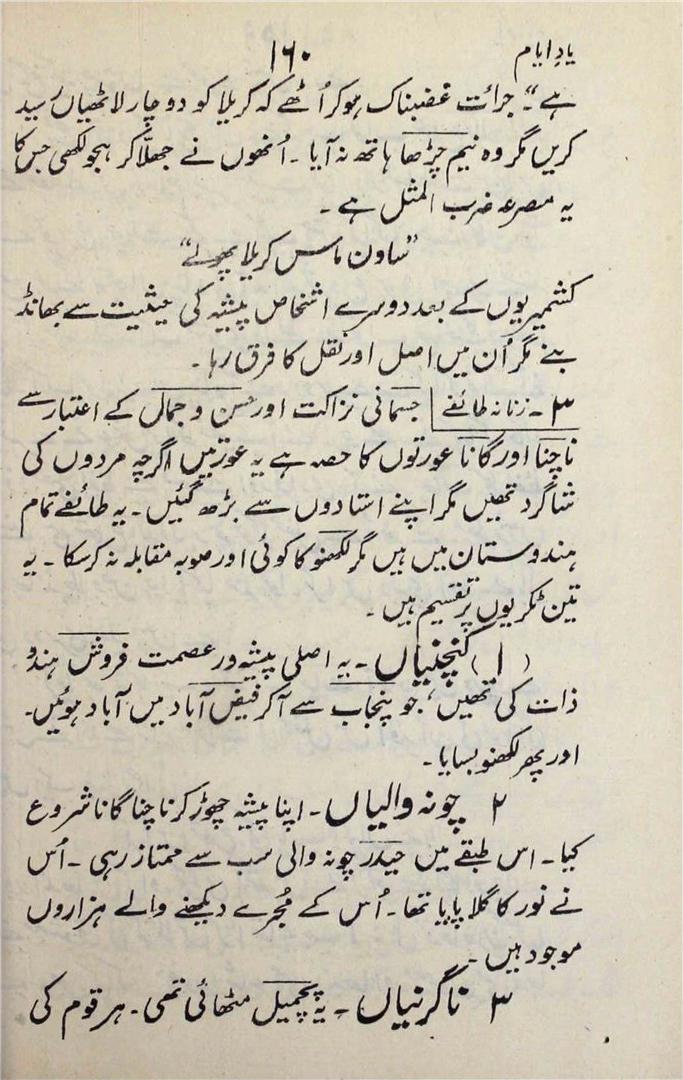 یادِ ایام
۱۶۰
ہے"۔ جرائت غضبناک ہو کر اُٹھے کہ کریلا کو دو چار لاٹھیاں رسید
کریں مگر وہ نیم چڑھا ہاتھ نہ آیا۔ اُنھوں نے جھلّا کر ہجو لکھی جس کا
یہ مصرعہ ضرب المثل ہے۔
"ساون ماس کریلا پھولے"
کشمیریوں کے بعد دوسرے اشخاص پیشہ کی حیثیت سے بھانڈ
بنے مگر اُن میں اصل اور نقل کا فرق رہا۔
۳۔ زنانہ طائفے جسمانی نزاکت اور حسن و جمال کے اعتبار سے
ناچنا اور گانا عورتوں کا حصہ ہے یہ عورتیں اگرچہ مردوں کی
شاگرد تھیں مگر اپنے استادوں سے بڑھ گئیں۔ یہ طائفے تمام
ہندوستان میں ہیں مگر لکھنؤ کا کوئی اور صوبہ مقابلہ نہ کرسکا۔ یہ
تین ٹکریوں پر تقسیم ہیں۔
(۱) کنچنیاں۔ یہ اصلی پیشہ ور عصمت فروش ہندو
ذات کی تھیں، جو پنجاب سے آکر فیض آباد میں آباد ہوئیں۔
اور پھر لکھنؤ بسایا۔
۲ چونہ والیاں۔ اپنا پیشہ چھوڑ کر ناچنا گانا شروع
کیا۔ اس طبقے میں حیدر چونہ والی سب سے ممتاز رہی۔ اُس
نے نور کا گلا پایا تھا۔ اُس کے مُجرے دیکھنے والے ہزاروں
موجود ہیں۔
۳ ناگرنیاں۔ یہ پچمیل مٹھائی تھی۔ ہر قوم کی